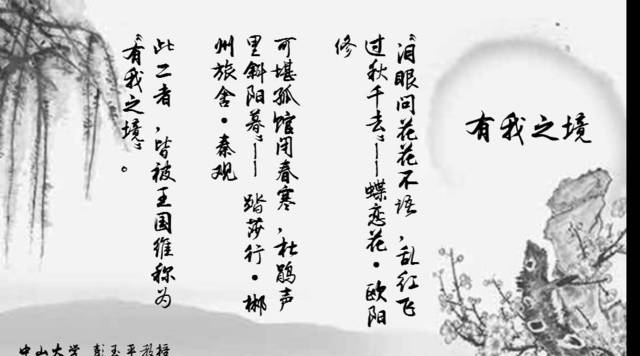 有我之境
“泪眼问花花不语，乱红飞
过秋千去”——蝶恋花·欧阳
修
可堪孤馆闭春寒，杜鹃声
里斜阳暮”——踏莎行·郴
州旅舍·秦观
此二者，皆被王国维称为
“有我之境”。
中山大学 彭玉平教授